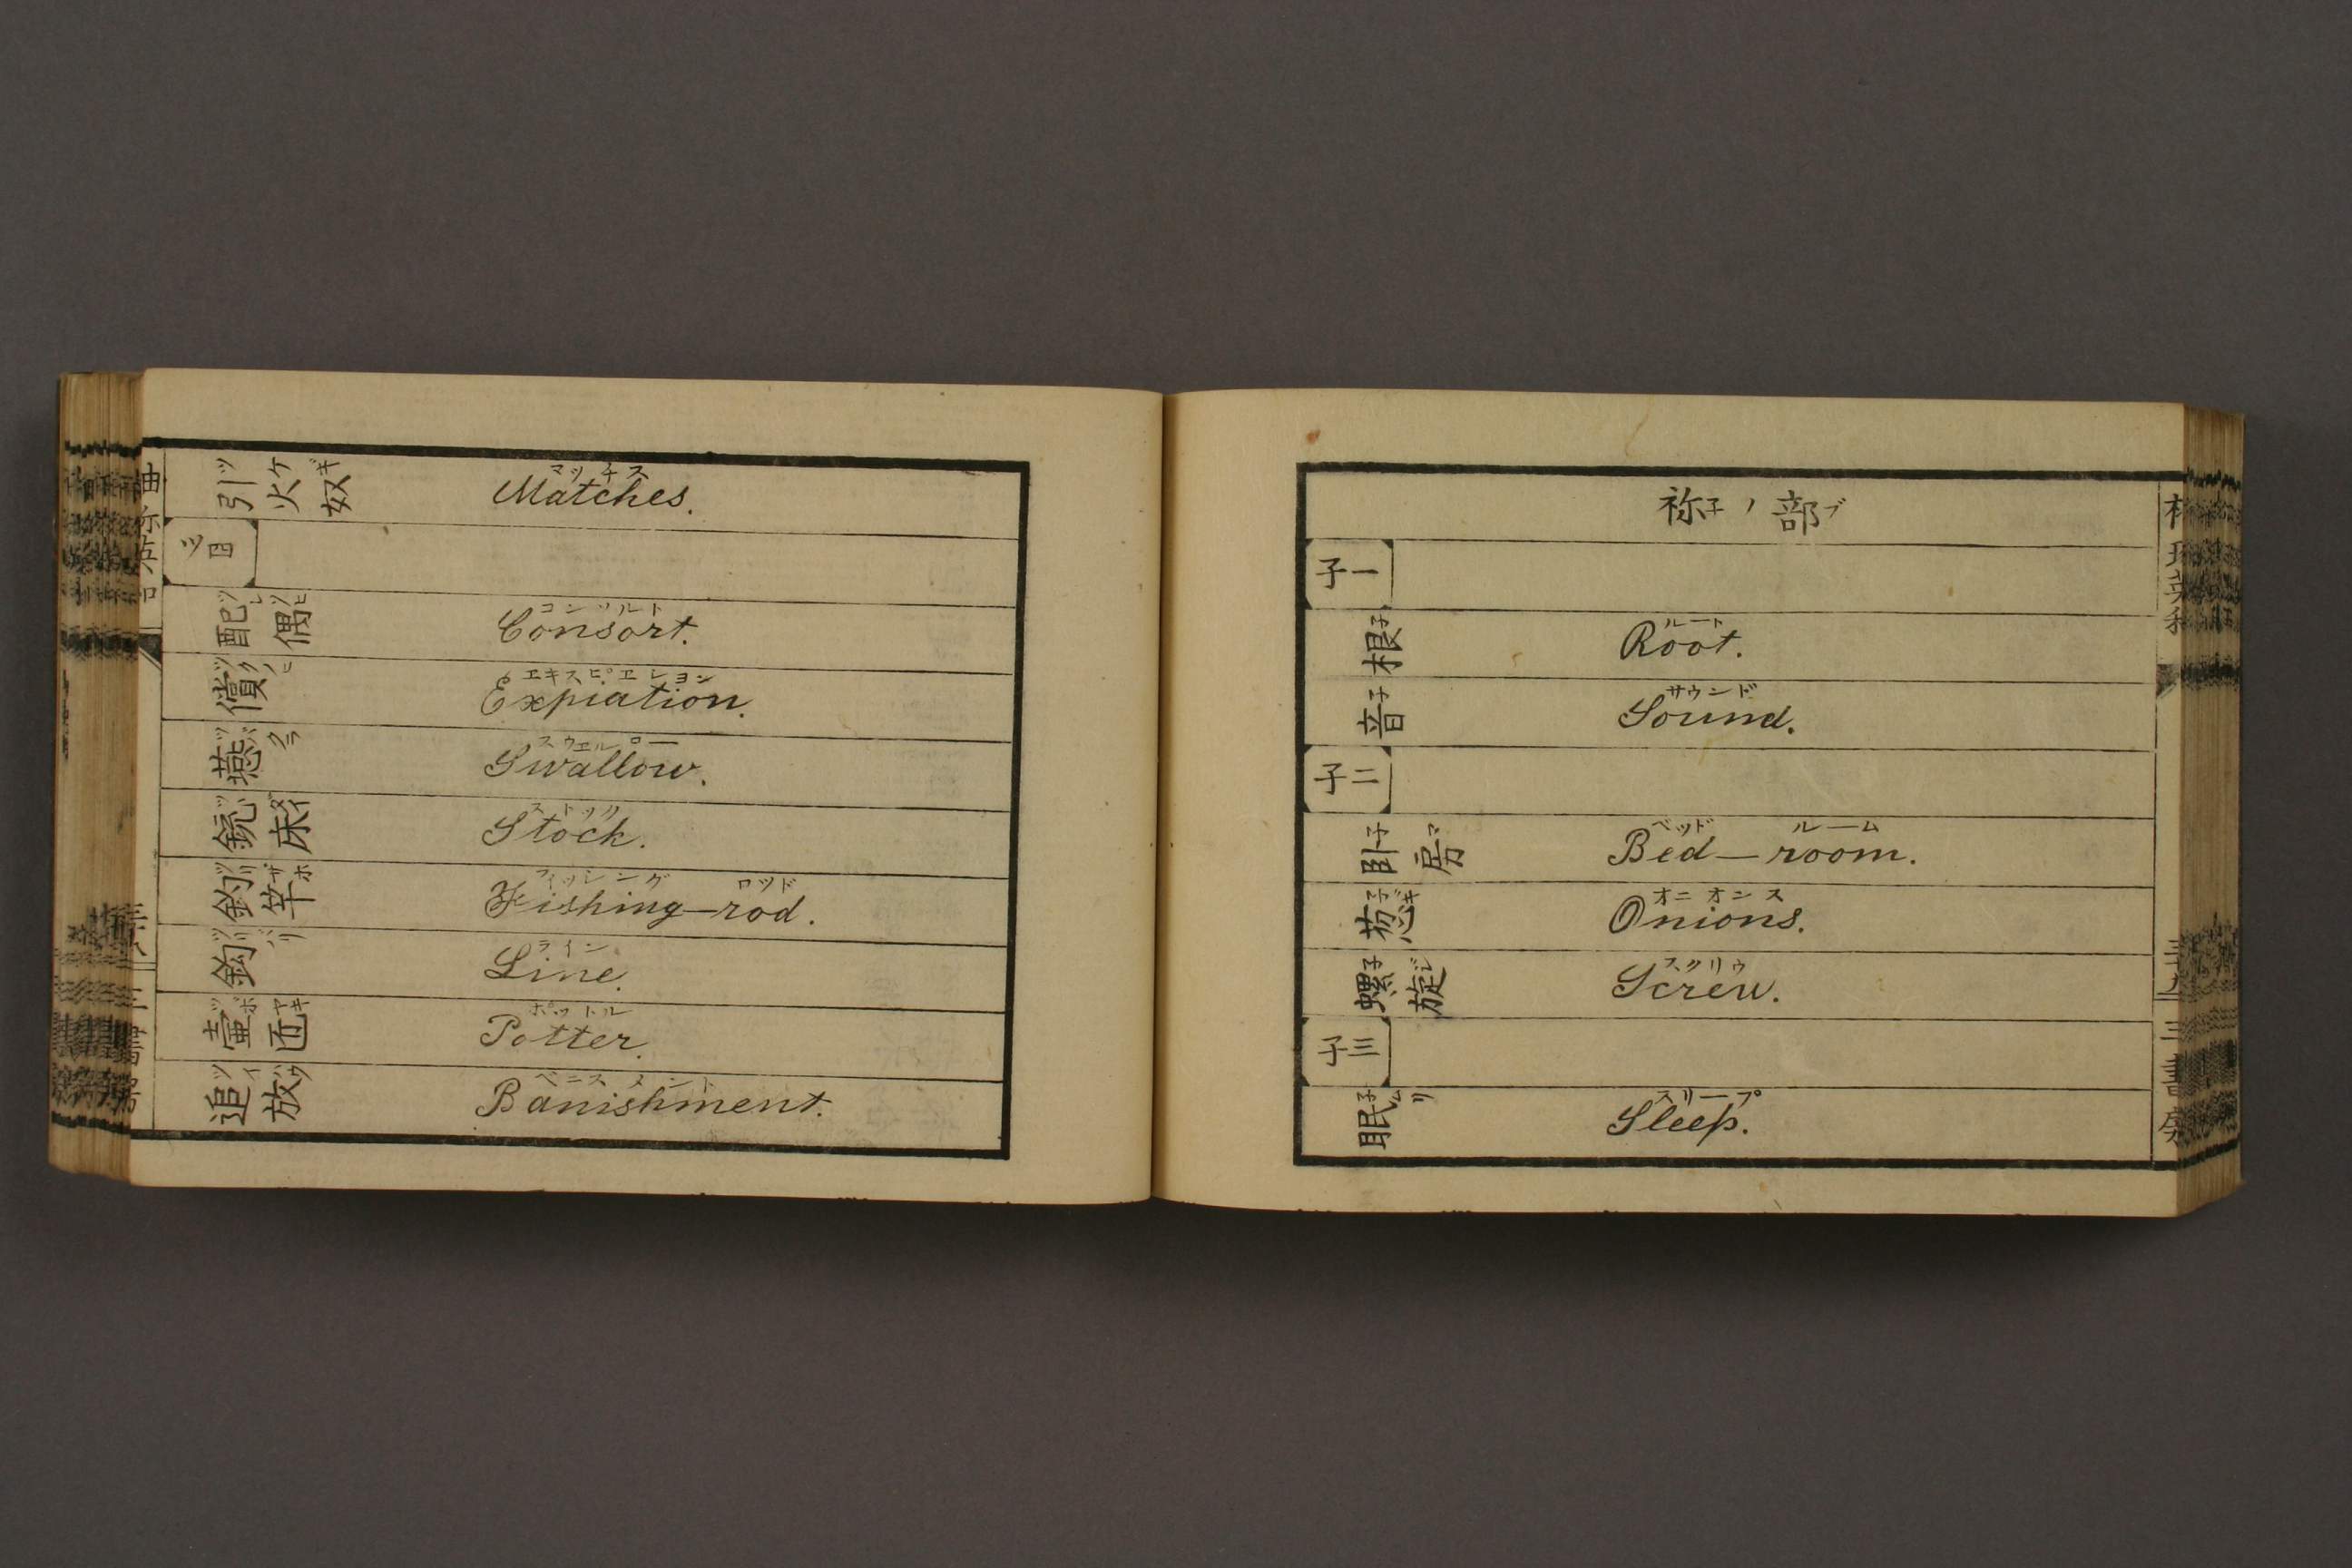 引火奴 ツケギ Matches. マッチス
ツ四
配偶 ツレソヒ Consort. コンソルト
償 ツクノヒ Expiation. エキスピエション
燕 ツバクラ Swallow. スウエルロー
銃床 ツヽダイ Stock. ストック
釣竿 ツリザホ Fishing-rod. フィッシング ロッド
鈎 ツリバリ Line. ライン
壷匠 ツボヤキ Potter. ポットル
追放 ツイハウ Banishment. ベニスメント
祢子ノ部ブ
子一
根 子 Root. ルート
音 子 Sound. サウンド
子二
臥房 子マ Bed-room. ベッド ルーム
葱 子ギ Onions. オニオンス
螺旋 子ジ Screw. スクリウ
子三
眠 子ムリ Sleep. スリープ